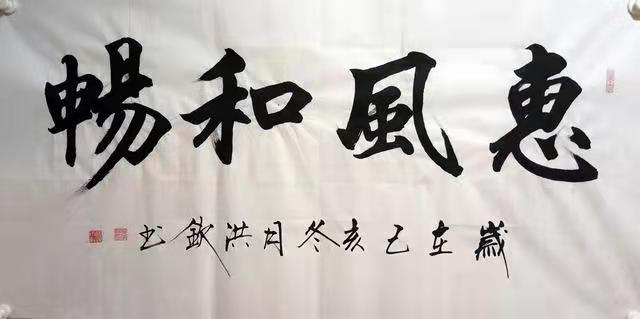 惠風和暢
歲在己亥冬月洪欽书